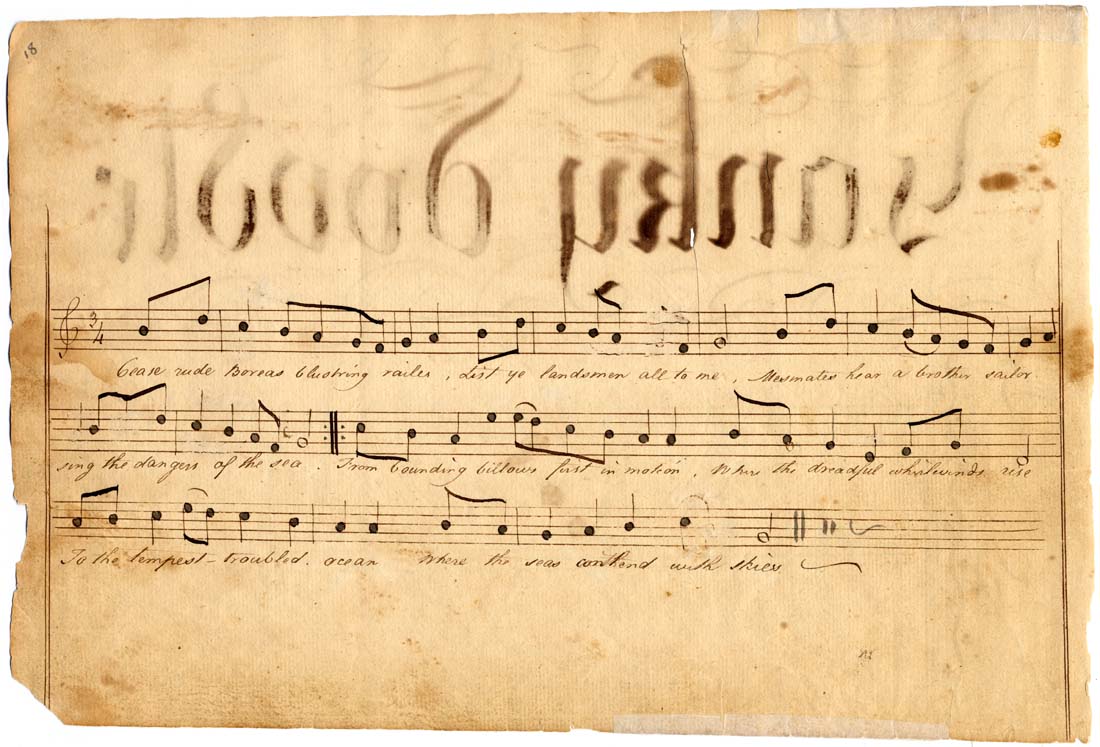 18
Yanky Doodle
3/4
Cease rude Boreas blustring railer, List ye landsmen all to me, Mesmates hear a brother sailor
sing the dangers of the sea. From bounding billows first in motion, When the dreadful whirlwinds rise
To the tempest-troubled. ocean Where the seas contend with skies